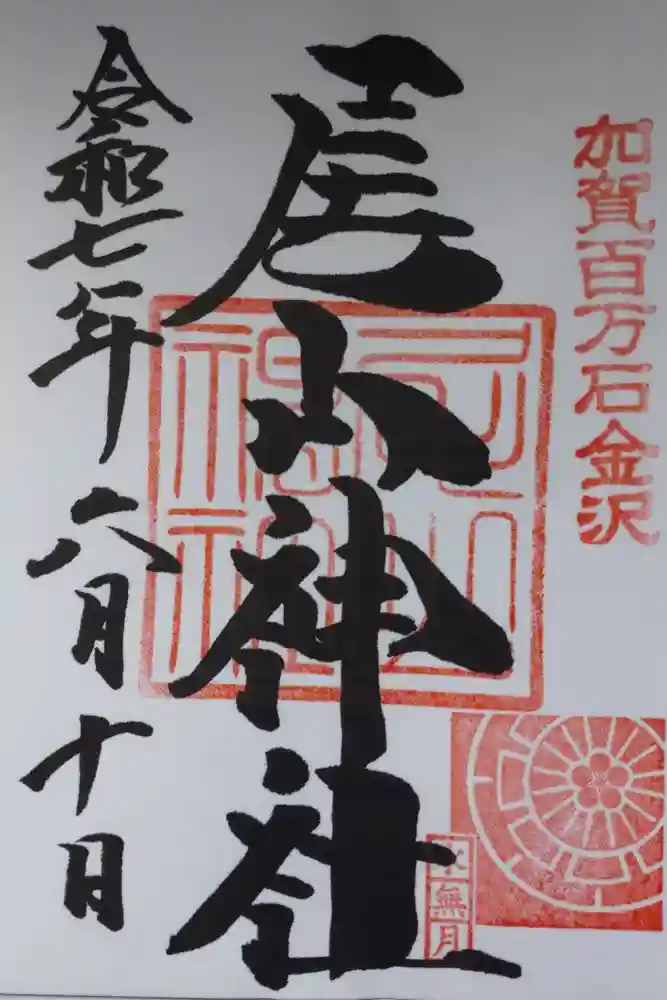 加賀百万石金沢
尾山神社
水無月
令和七年六月十日